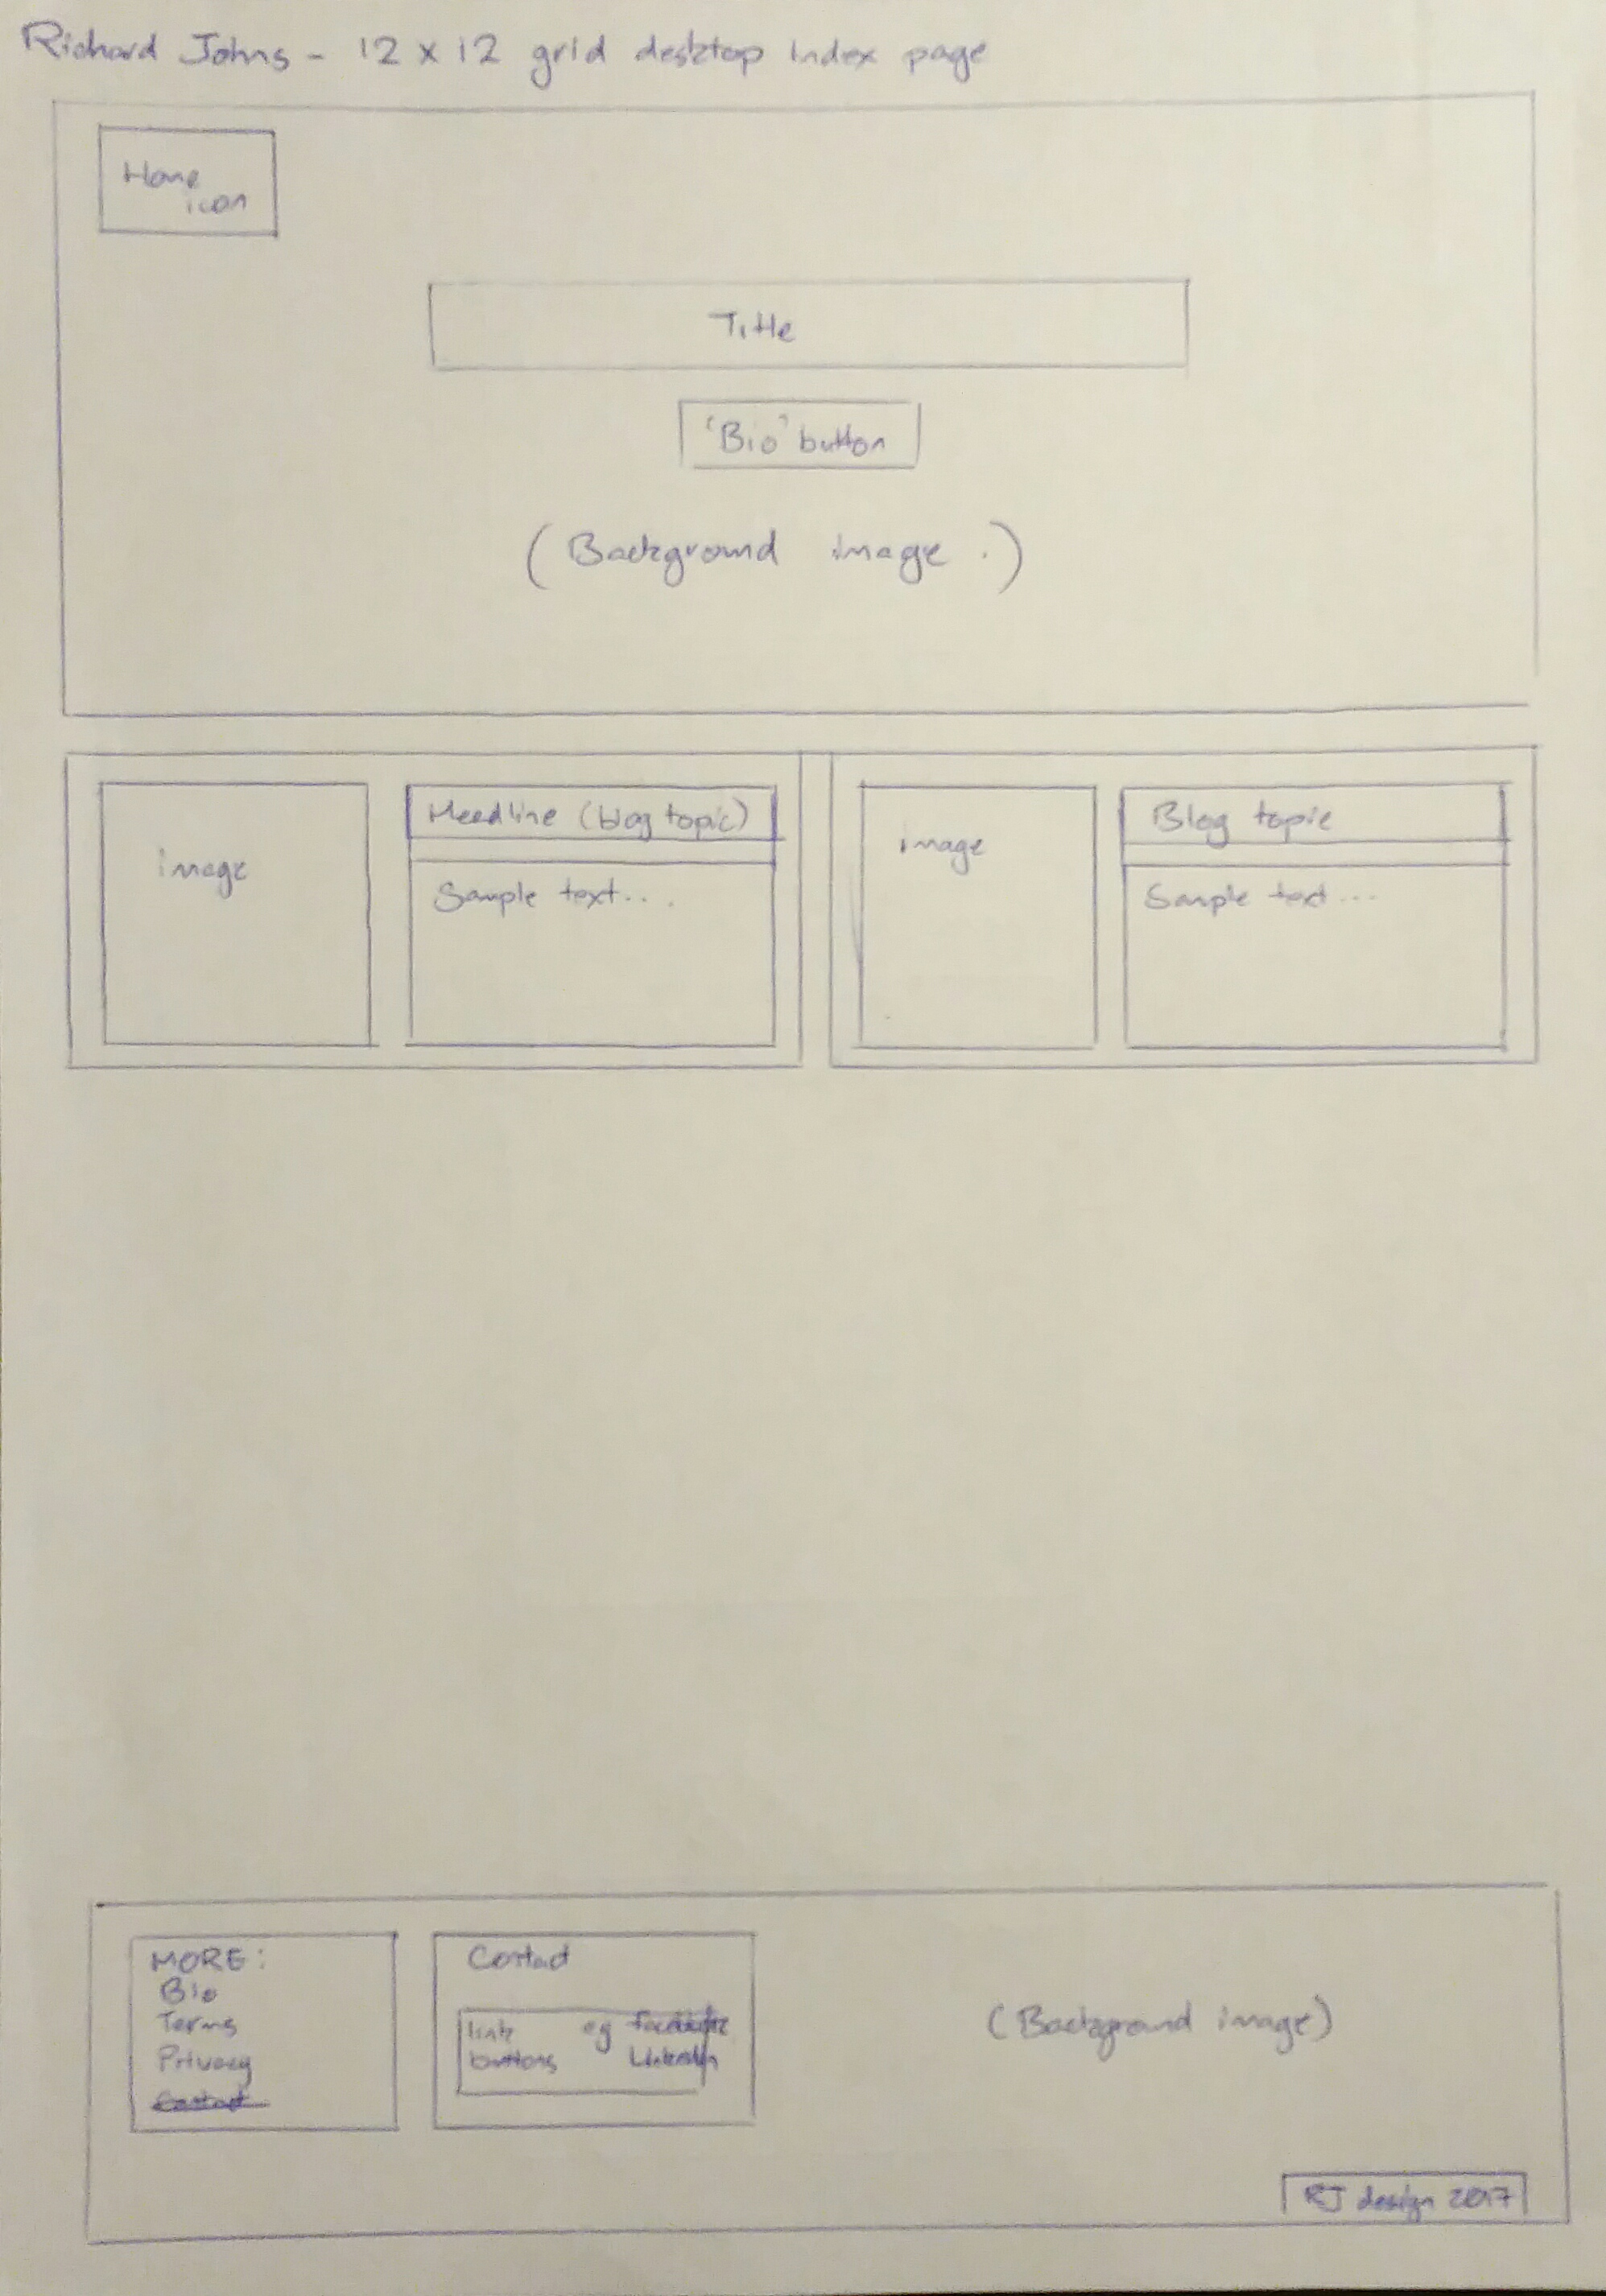 Richard Johns - 12 x 12 grid desktop index page
Home
icon
Title
'Bio' button
(Background image.)
image
Headline (blog topic)
Sample text...
image
Blog topic
Sample text...
MORE:
Bio
Terms
Privacy
Contact
Contact
link eg facebook
buttons Linkedin
(Background image)
RJ design 2017